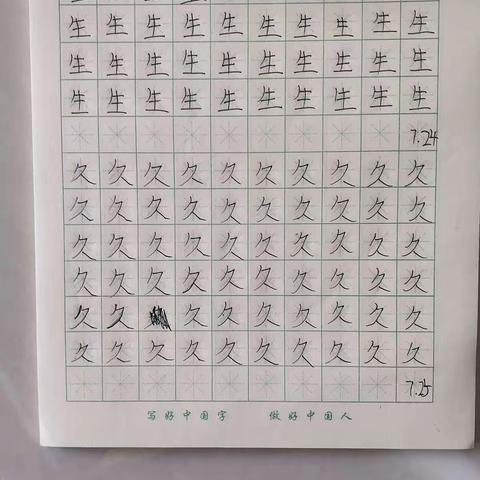 生生生生生生生生生生
生生生生生生生生生生
生生生生生生生生生生
7.24
久久久久久久久久久久
久久久久久久久久久久
久久久久久久久久久久
久久久久久久久久久久
久久久久久久久久久
久久久久久久久久久久
7.25
写好中国字 做好中国人